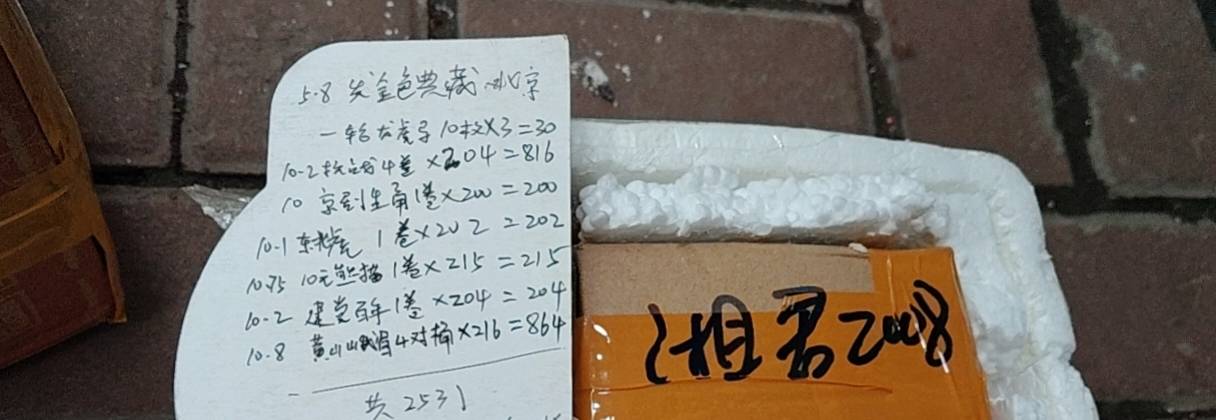 5.8 发金色典藏 北京
一轮龙虎号 10枚×3=30
10-2 4卷 ×204=816
10 京剧生角1卷×200=200
10-1 1卷×202=202
10.75 10元熊猫1卷×215=215
10-2 建党百年1卷×204=204
10-8 黄山峨眉4对桶×216=864
共2531
湘君2008